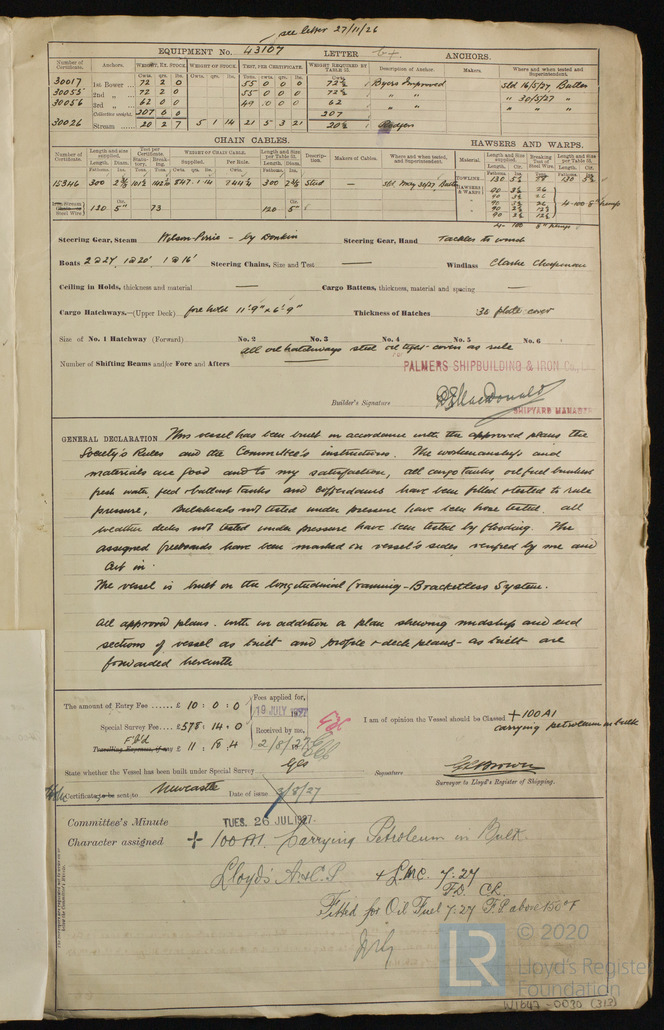 see letter 27/11/26
EQUIPMENT No. 43107 LETTER ANCHORS.
Number of Certificate. Anchors. WEIGHT, EX. STOCK. WEIGHT OF STOCK. TEST, PER CERTIFICATE. WEIGHT REQUIRED BY TABLE 31. Description of Anchor. Makers. Where and when tested and Superintendent.
Cwts. qrs. lbs. Cwts. qrs. lbs. Tons. cwts. qrs. lbs. Cwts.
30017 1st Bower 72 2 0 55 0 0 0 72½ Byers Improved Sld 16/5/27, Butler
30055 2nd „ 72 2 0 55 0 0 0 72½ „ „ „ 30/5/27 „
30056 3rd „ 62 0 0 49 0 0 0 62 „ „ „ „ „
Collective weight. 207 0 0 207
30026 Stream 20 2 7 5 1 14 21 5 3 21 20½ Rodgers
CHAIN CABLES. HAWSERS AND WARPS.
Number of Certificate. Length and size supplied. Test per Certificate. WEIGHT OF CHAIN CABLE. Length and Size per Table 31. Description. Makers of Cables. Where and when tested, and Superintendent. Material. Length and Size supplied. Breaking Test of Steel Wire. Length and size per Table 31.
Length. Diam. Statutory. Breaking. Supplied. Per Rule. Length. Diam. Length. Cir. Length. Cir.
15346 300 300 Stud — Sld May 30/27, Butler TOWLINE 130 130
HAWSERS & WARPS
Steel Wire 120 5" 73 120 5"
Steering Gear, Steam Wilson-Pirrie — by Donkin Steering Gear, Hand Tackles to winch
Boats 2 @ 27', 1 @ 20' 1 @ 16' Steering Chains, Size and Test — Windlass Clarke Chapman
Ceiling in Holds, thickness and material — Cargo Battens, thickness, material and spacing —
Cargo Hatchways.—(Upper Deck) fore hold 11'9" x 6'9" Thickness of Hatches 36 plate cover
Size of No. 1 Hatchway (Forward) No. 2 No. 3 No. 4 No. 5 No. 6
All oil hatchways steel oil tight covers as rule
Number of Shifting Beams and/or Fore and Afters —
PALMERS SHIPBUILDING & IRON Co., Ltd.
Builder's Signature MacDonald
SHIPYARD MANAGER
GENERAL DECLARATION This vessel has been built in accordance with the approved plans the
Society's Rules and the Committee's instructions. The workmanship and
materials are good and to my satisfaction, all cargo tanks, oil fuel bunkers
fresh water, feed & ballast tanks and cofferdams have been filled & tested to rule
pressure, Bulkheads not tested under pressure have been hose tested, all
weather decks not tested under pressure have been tested by flooding. The
assigned freeboards have been marked on vessel's sides, verified by me and
cut in.
The vessel is built on the longitudinal framing - Bracketless System.
All approved plans. with in addition a plan shewing midship and end
sections of vessel as built and profile & deck plans - as built are
forwarded herewith
The amount of Entry Fee ...... £ 10 : 0 : 0 Fees applied for, 19 JULY 1927
Special Survey Fee .... £578 : 14 : 0 Received by me,
Travelling Expenses, if any £ 11 : 18 : 4 2/8/27
I am of opinion the Vessel should be Classed + 100 A1
carrying petroleum in bulk
State whether the Vessel has been built under Special Survey Yes Signature
Surveyor to Lloyd's Register of Shipping.
Certificate to be sent to Newcastle Date of issue 3/8/27
Committee's Minute TUES. 26 JUL 1927
Character assigned + 100 A1. Carrying Petroleum in Bulk
Lloyd's A & C.P. + LMC. 7.27
F.D. CL.
Fitted for Oil Fuel 7.27 F.P. above 150°F
LR © 2020
Lloyd's Register
Foundation
W1647-0030 (313)